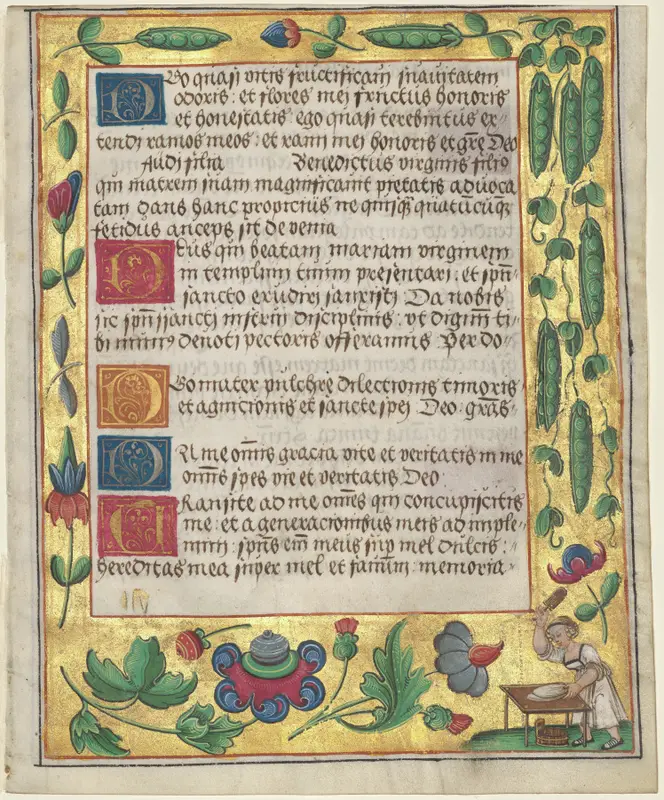 Ego quasi vitis fructificavi suavitatem
odoris: et flores mei fructus honoris
et honestatis ego quasi terebintus ex-
tendi ramos meos: et rami mei honoris et gr̄e Deo
Audi filia Benedictus virginis filiꝰ
qui matrem suam magnificavit pietatis advoca
tam dans hanc propicius ne quisq̄ quātūcūq̄
fetidus anceps sit de venia
Deus qui beatam mariam virginem
in templum tuum presentari: et sp̄u-
sancto erudiri sanxisti Da nobis
sic sp̄u sancti disciplinis: vt dignū ti-
bi munꝰ devoti pectoris offeramus Per do-
Ego mater pulchre dilectionis timoris
et agnicionis et sancte spei Deo grās
In me om̄is gracia vite et veritatis in me
om̄is spes vie et veritatis Deo
Transite ad me om̄es qui concupiscitis
me: et a generacionibus meis adimple-
mini: sp̄us em̄ meus sup mel dulcis:
hereditas mea super mel et favum: memoria-